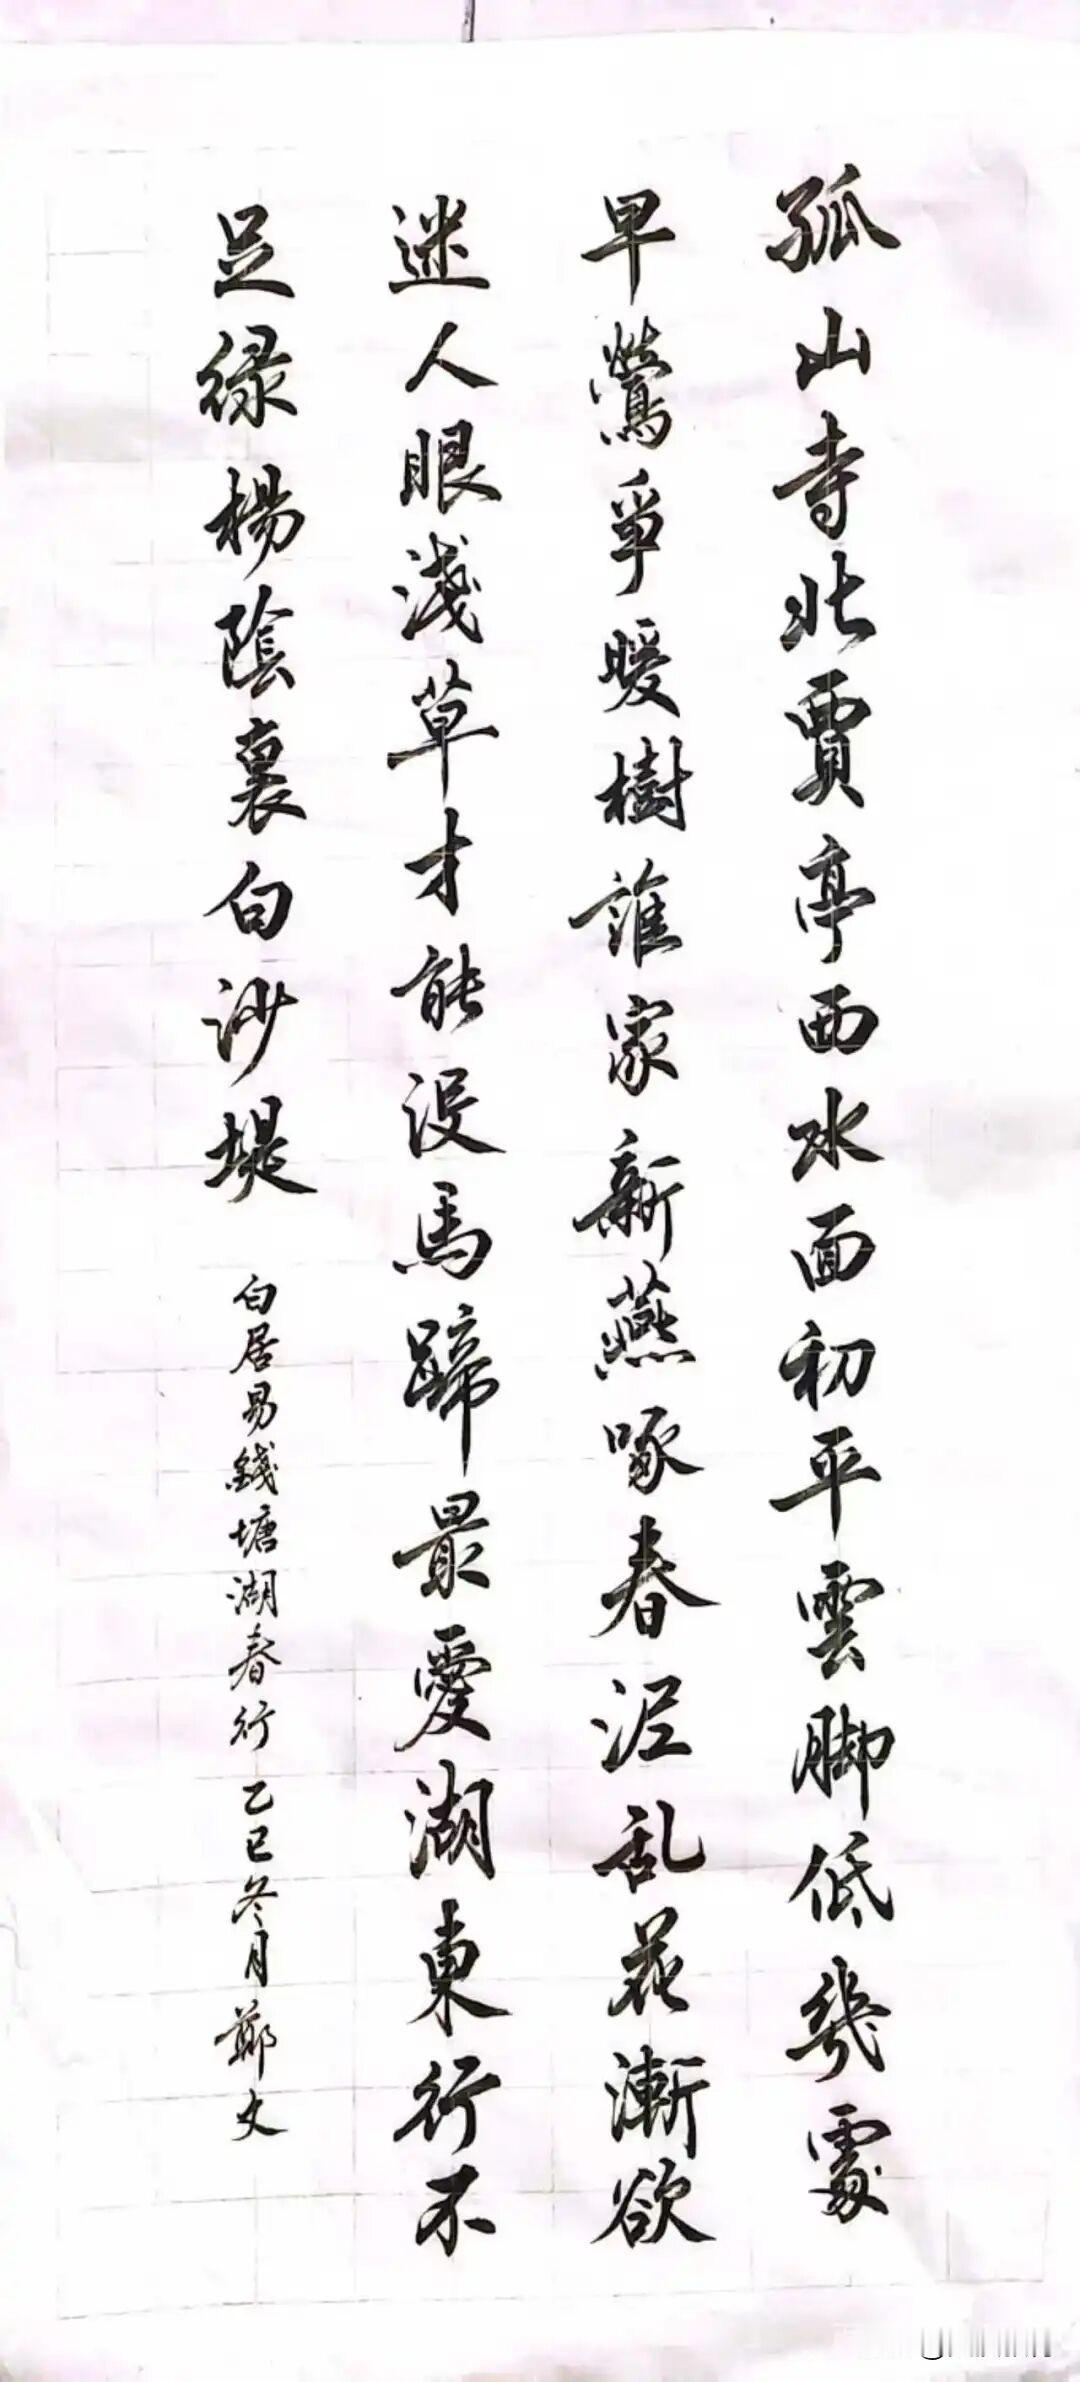 孤山寺北賈亭西水面初平雲脚低幾處
早鶯爭暖樹誰家新燕啄春泥乱花漸欲
迷人眼淺草才能没馬蹄最愛湖東行不
足绿楊陰裏白沙堤
白居易錢塘湖春行乙巳冬月鄭文